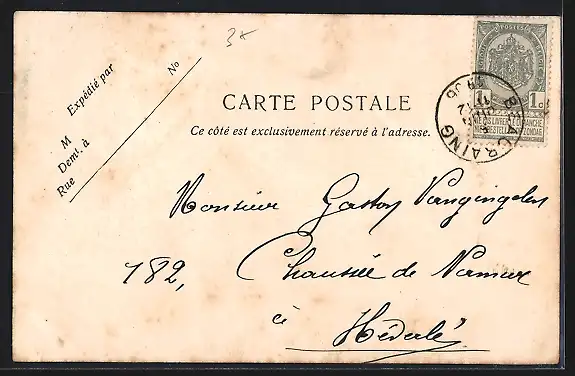 3x
No
Expédié par
M
Demt. à
Rue
CARTE POSTALE
Ce côté est exclusivement réservé à l'adresse.
POSTES
1c 1c
NE PAS LIVRER LE DIMANCHE
NIET BESTELLEN OP ZONDAG
BEAURAING
Monsieur Gaston Vangingelen
182, Chaussée de Namur
à Héverlé